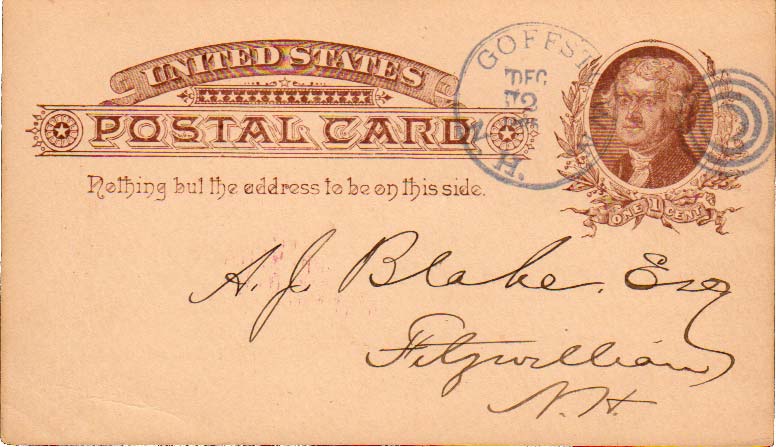 UNITED STATES
POSTAL CARD
Nothing but the address to be on this side.
GOFFST
DEC
2
N. H.
ONE 1 CENT
A. J. Blake, Esq
Fitzwilliam
N. H.